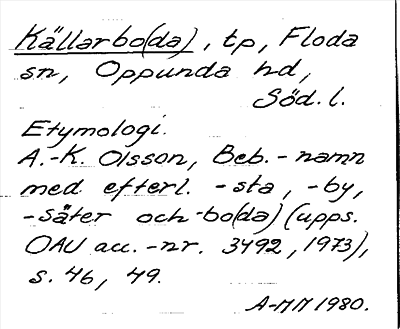 Källarbo(da), tp, Floda
sn, Oppunda hd,
Söd. l.
Etymologi.
A.-K. Olsson, Beb.-namn
med efterl. -sta, -by,
-säter och -bo(da) (upps.
OAU acc.-nr. 3492, 1973),
s. 46, 49.
A-MM 1980.